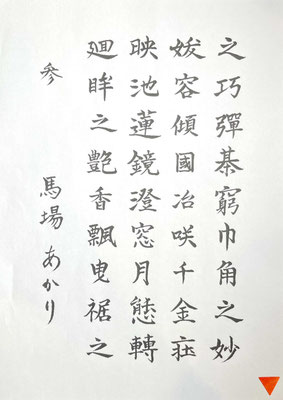 之巧彈棊窮巾角之妙
妭容傾國冶咲千金莊
映池蓮鏡澄窓月態轉
廻眸之艷香飄曳裾之
参 馬場あかり